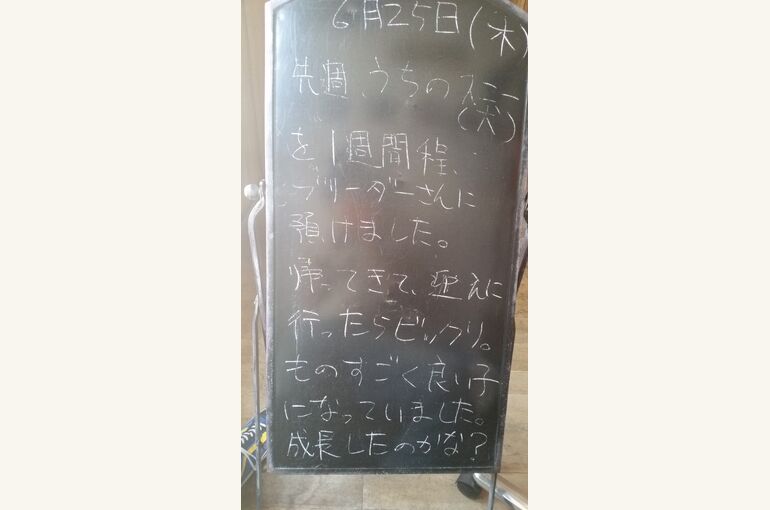 6月25日(木)
先週、うちのスニー
(犬)
を1週間程、
ブリーダーさんに
預けました。
帰ってきて、迎えに
行ったらビックリ。
ものすごく良い子
になっていました。
成長したのかな?